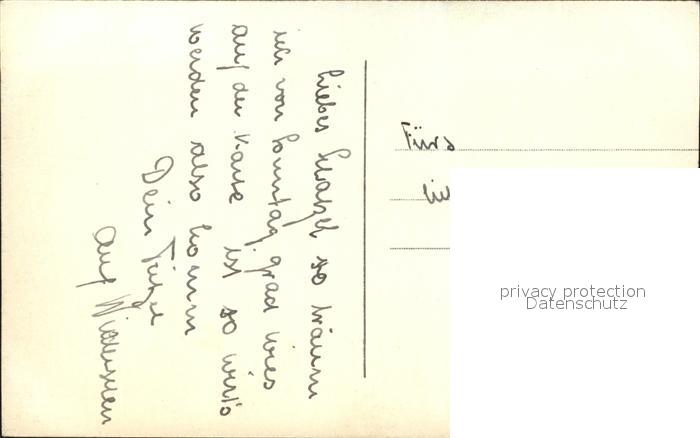 Liebes Schatzel so träum
ich von Sonntag, grad wies
auf der Karte ist so wird's
werden also komm
Dein
Auf Wiedersehen
Fürs
privacy protection
Datenschutz